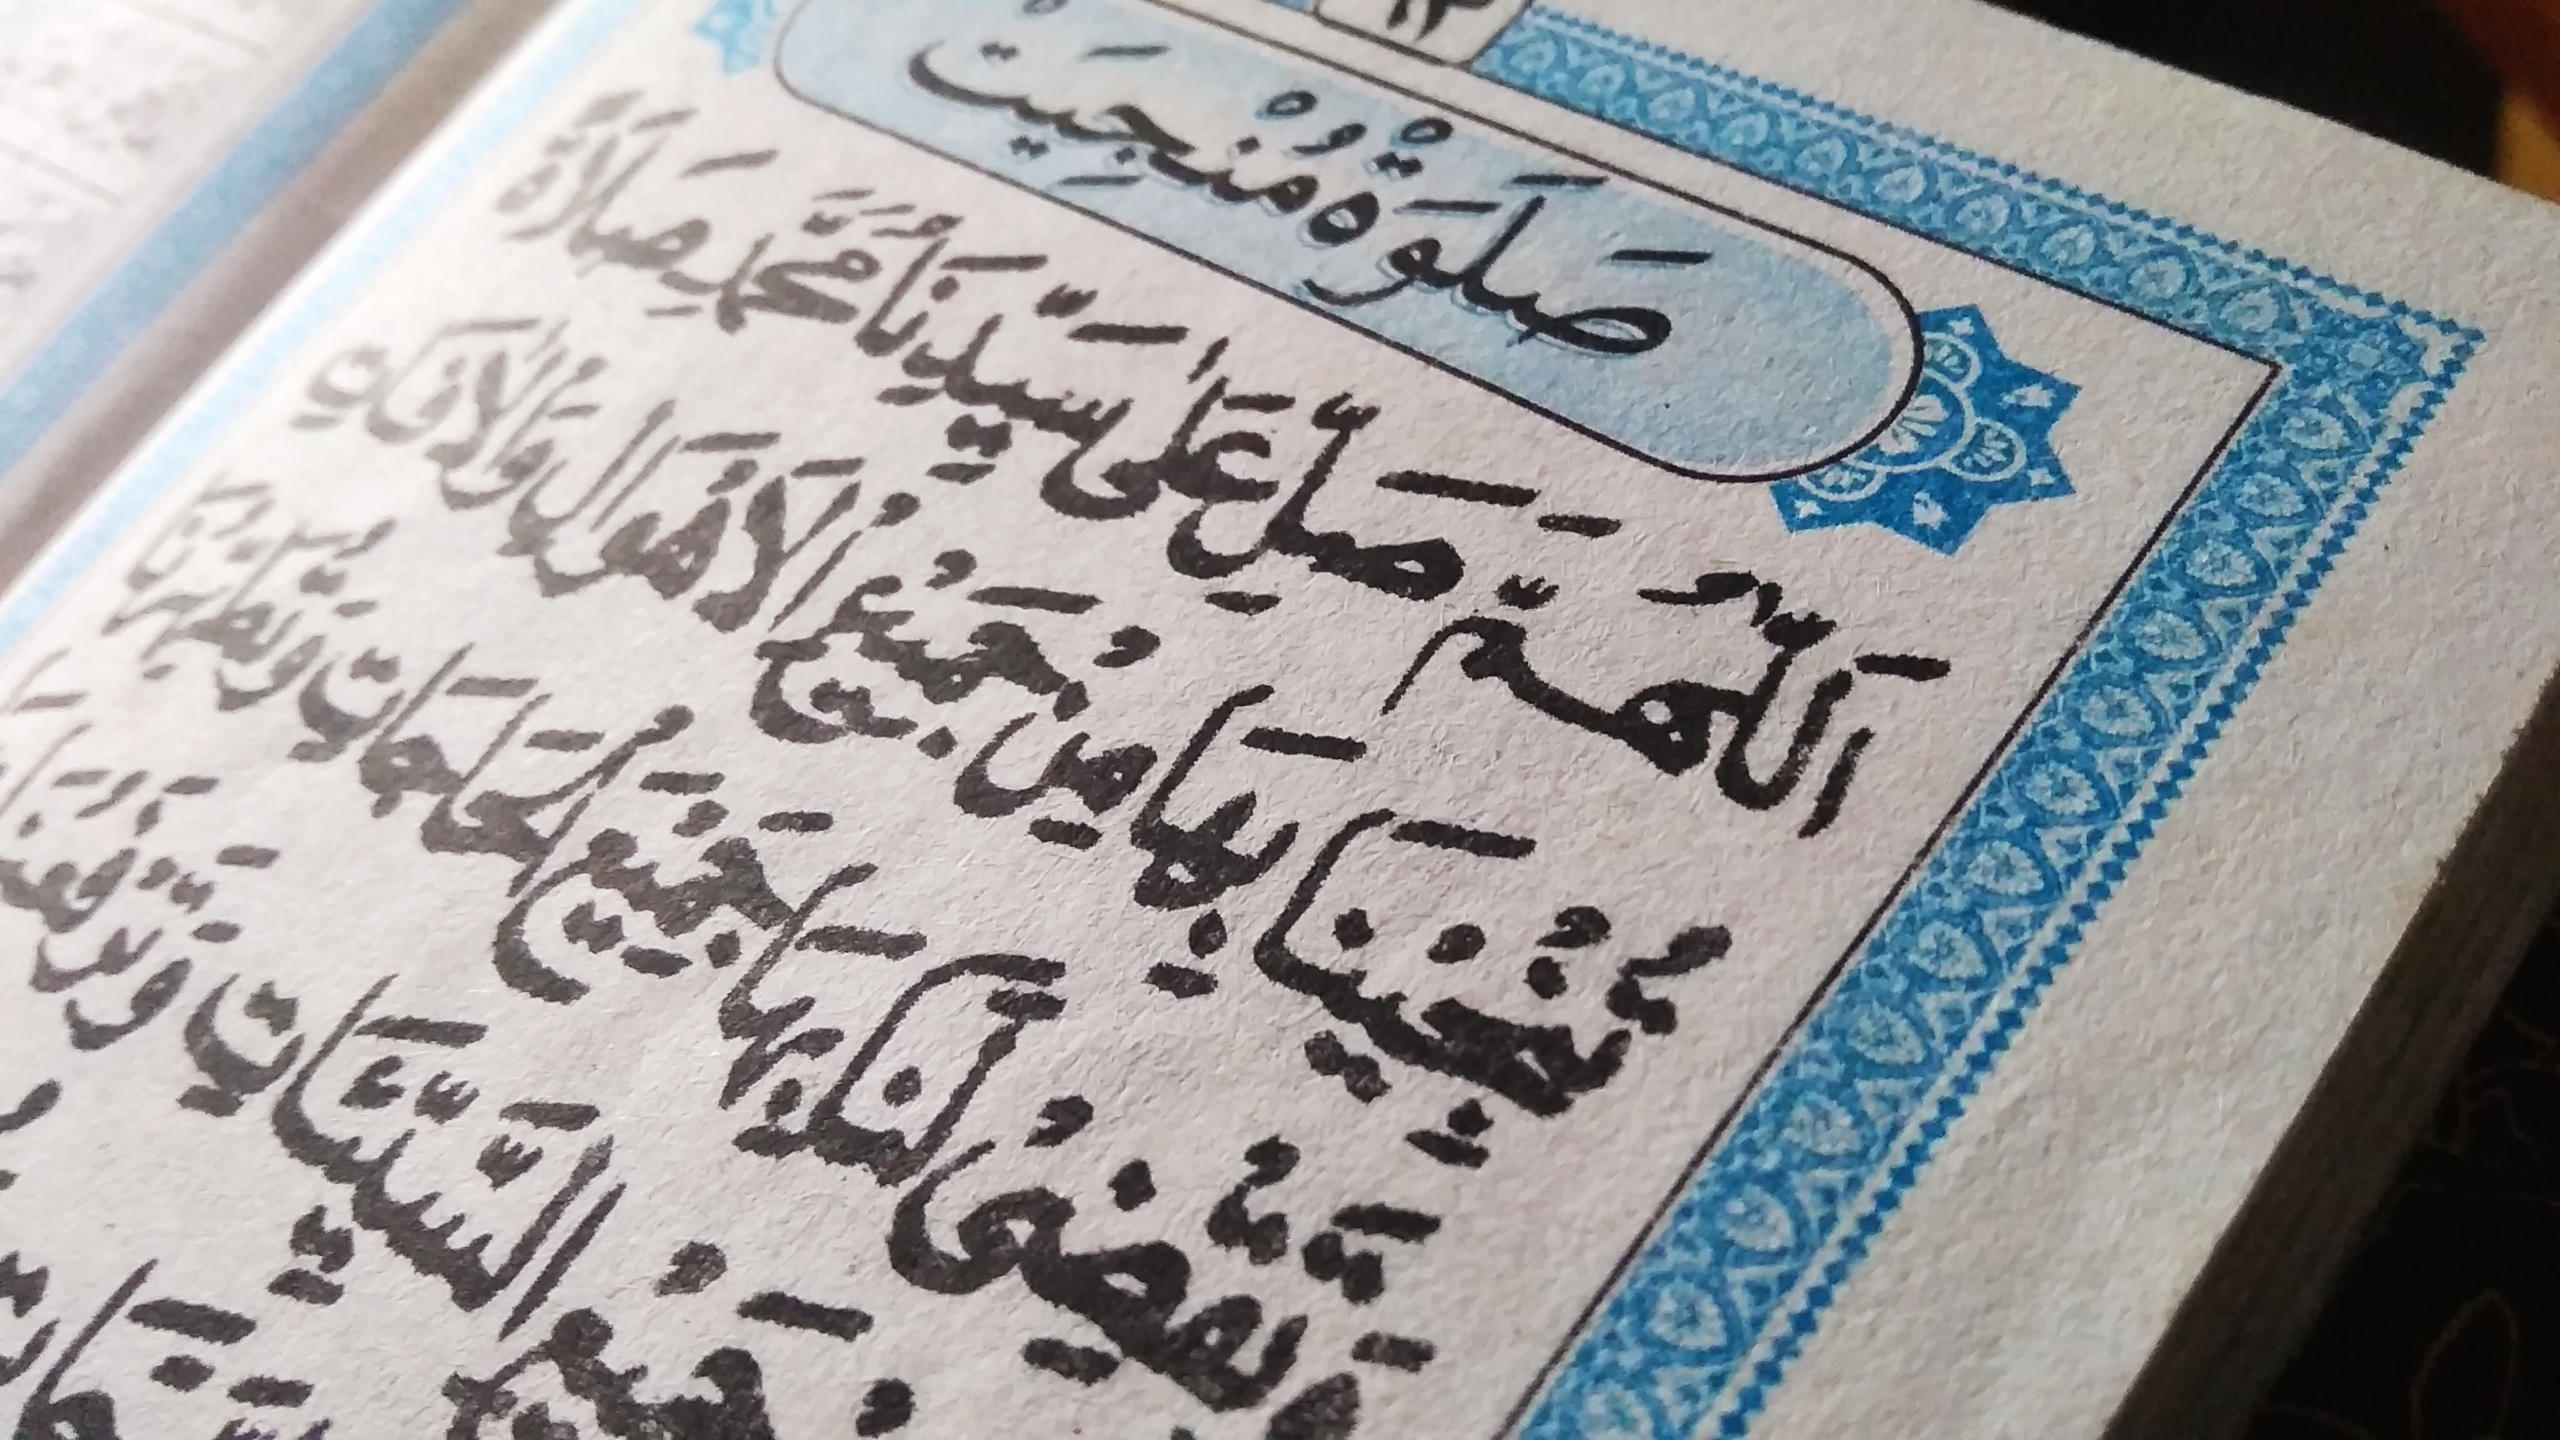 صَلَوَةُ مُنْجِيَتْ
اَللّٰهُمَّ صَلِّ عَلٰى سَيِّدِنَا مُحَمَّدٍ صَلَاةً
تُنْجِيْنَا بِهَا مِنْ جَمِيْعِ الْاَهْوَالِ وَالْاٰفَاتِ
وَتَقْضِىْ لَنَا بِهَا جَمِيْعَ الْحَاجَاتِ وَتُطَهِّرُنَا
جَمِيْعِ السَّيِّئَاتِ وَتَرْفَعُنَا